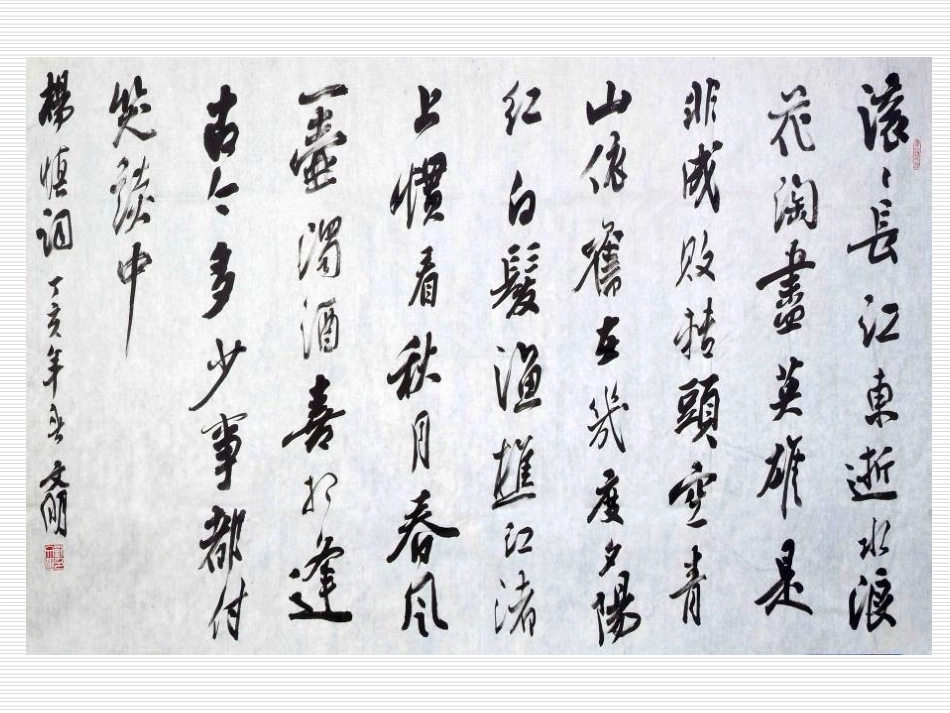 滚〻長江東逝水浪
花淘盡英雄是
非成敗轉頭空青
山依舊在幾度夕陽
紅白髮漁樵江渚
上慣看秋月春風
一壺濁酒喜相逢
古今多少事都付
笑談中
楊慎詞 丁亥年 文明